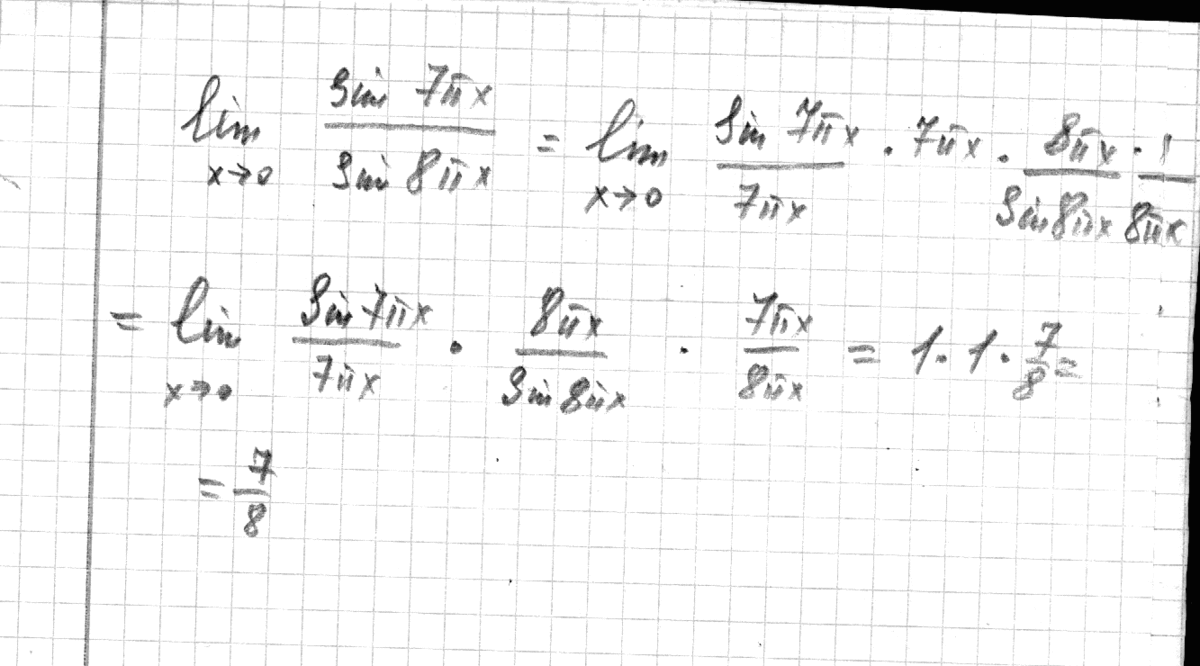 lim x→0 sin 7πx / sin 8πx = lim x→0 sin 7πx / 7πx · 7πx · 8πx / sin 8πx · 1 / 8πx
= lim x→0 sin 7πx / 7πx · 8πx / sin 8πx · 7πx / 8πx = 1 · 1 · 7/8 =
= 7/8